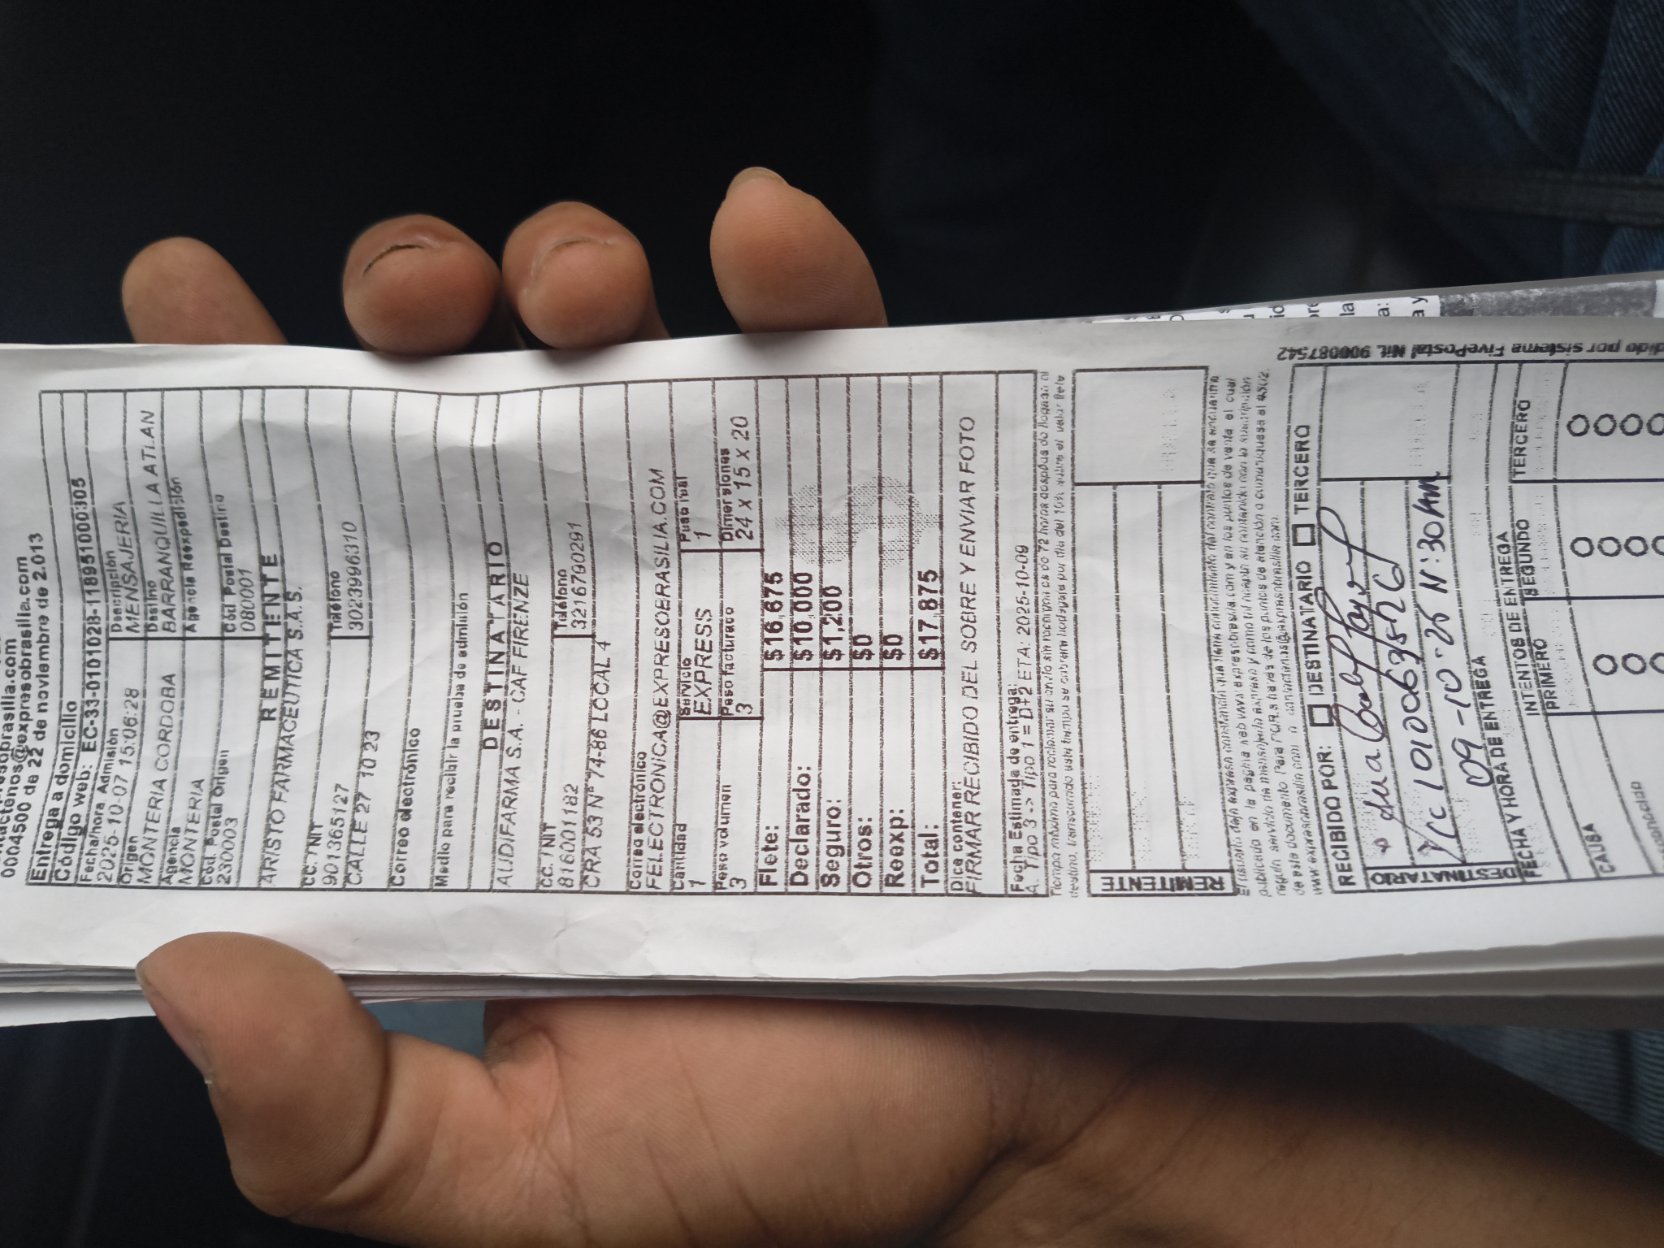 0004500 de 22 de noviembre de 2.013
Entrega a domicilio
Código web: EC-33-0101028-118951000305
Fecha/hora Admisión
2025-10-07 15:06:28
Descripción
MENSAJERIA
Origen
MONTERIA CORDOBA
Destino
BARRANQUILLA ATLAN
Agencia
MONTERIA
Agencia Reexpedisión
Cód. Postal Origen
230003
Cód. Postal Destino
080001
REMITENTE
ARISTO FARMACEUTICA S.A.S.
CC. / NIT
901365127
Teléfono
3023996310
CALLE 27 10 23
Correo electrónico
Medio para recibir la prueba de admisión
DESTINATARIO
AUDIFARMA S.A. - CAF FIRENZE
CC. / NIT
816001182
Teléfono
3216790291
CRA 53 N° 74-86 LOCAL 4
Correo electrónico
FELECTRONICA@EXPRESOBRASILIA.COM
Cantidad
1
Servicio
EXPRESS
Peso real
1
Peso volumen
3
Peso facturado
3
Dimensiones
24 x 15 x 20
Flete: $16,675
Declarado: $10,000
Seguro: $1,200
Otros: $0
Reexp: $0
Total: $17,875
Dice contener:
FIRMAR RECIBIDO DEL SOBRE Y ENVIAR FOTO
Fecha Estimada de entrega:
A. Tipo 3 -> Tipo 1 = D+2 ETA: 2025-10-09
REMITENTE
RECIBIDO POR: DESTINATARIO TERCERO
DESTINATARIO
09-10-25 11:30Am
FECHA Y HORA DE ENTREGA
INTENTOS DE ENTREGA
PRIMERO SEGUNDO TERCERO
CAUSA